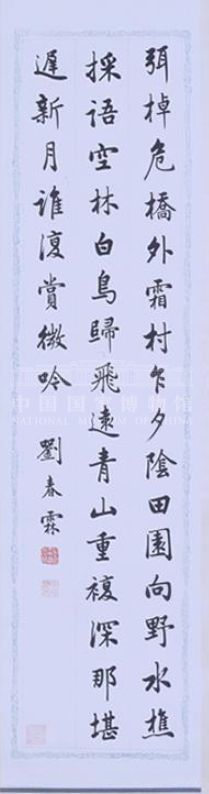 弭棹危橋外霜村乍夕陰田園向野水樵
採語空林白鳥歸飛遠青山重複深那堪
遲新月誰復賞微吟
劉春霖
中国国家博物馆
NATIONAL MUSEUM OF CHINA